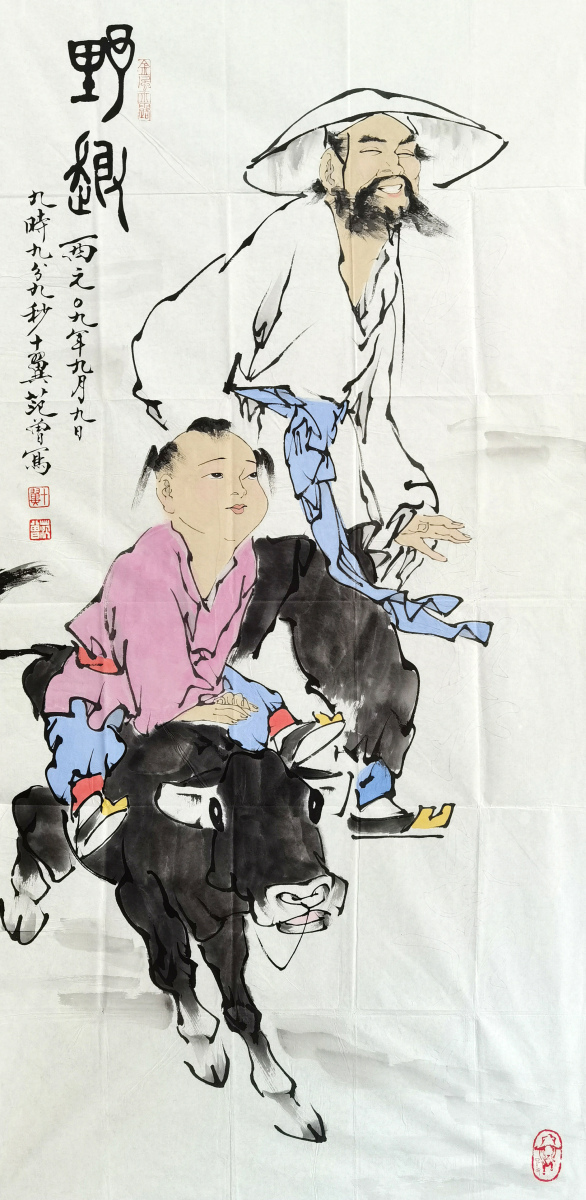 野趣
西元〇九年九月九日
九時九分九秒十翼范曾寫
十翼
范曾